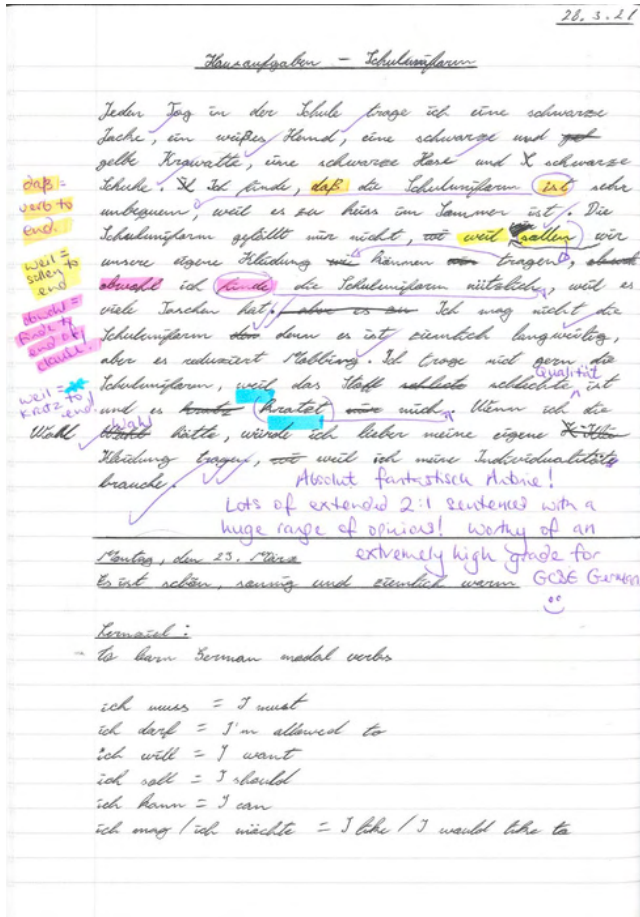 28.3.21
Hausaufgaben — Schuluniform
Jeden Tag in der Schule trage ich eine schwarze
Jacke, ein weißes Hemd, eine schwarze und
gelbe Krawatte, eine schwarze Hose und X schwarze
Schuhe. Ich finde, daß die Schuluniform ist sehr
unbequem, weil es zu heiss im Sommer ist. Die
Schuluniform gefällt mir nicht, weil sollen wir
unsere eigene Kleidung können tragen,
obwohl ich finde die Schuluniform nützlich, weil es
viele Taschen hat. Ich mag nicht die
Schuluniform denn es ist ziemlich langweilig,
aber es reduziert Mobbing. Ich trage nict gern die
Schuluniform, weil das Stoff schlechte Qualität ist
und es kratzt mich. Wenn ich die
Wahl Wahl hätte, würde ich lieber meine eigene
Kleidung tragen, weil ich meine Individualität
brauche.
daß =
verb to
end.
weil =
sollen to
end
obwohl =
finde to
end of
clause.
weil =
kratz to
end!
Absolut fantastisch
Lots of extended 2:1 sentences with a
huge range of opinions! Worthy of an
extremely high grade for
GCSE German
Montag, den 23. März
Es ist schön, sonnig und ziemlich warm
Lernziel :
to learn German modal verbs
ich muss = I must
ich darf = I'm allowed to
ich will = I want
ich soll = I should
ich kann = I can
ich mag / ich möchte = I like / I would like to